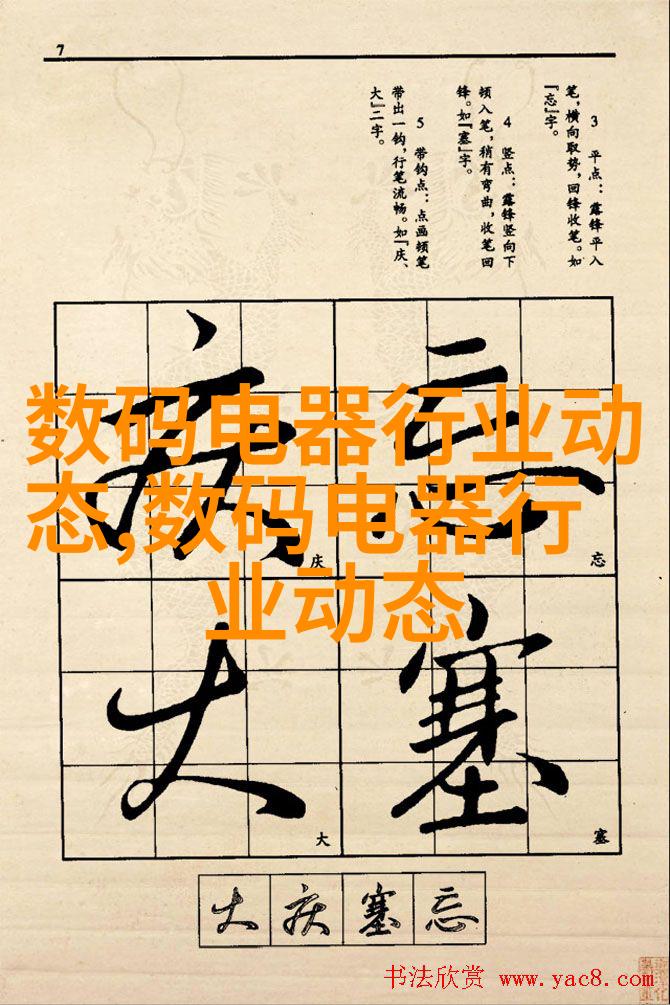 7
3 平点：露锋平入
笔，横向取势，回锋收笔。如
『忘』字。
4 竖点：露锋竖向下
顿入笔，稍有弯曲，收笔回
锋。如『塞』字。
5 带钩点：点画顿笔
带出一钩，行笔流畅。如『庆、
大』二字。
数码电器行业动
态,数码电器行
业动态
庆 忘
庆
忘
大 塞
大
塞
大 庆 塞 忘
书法欣赏 www.yac8.com